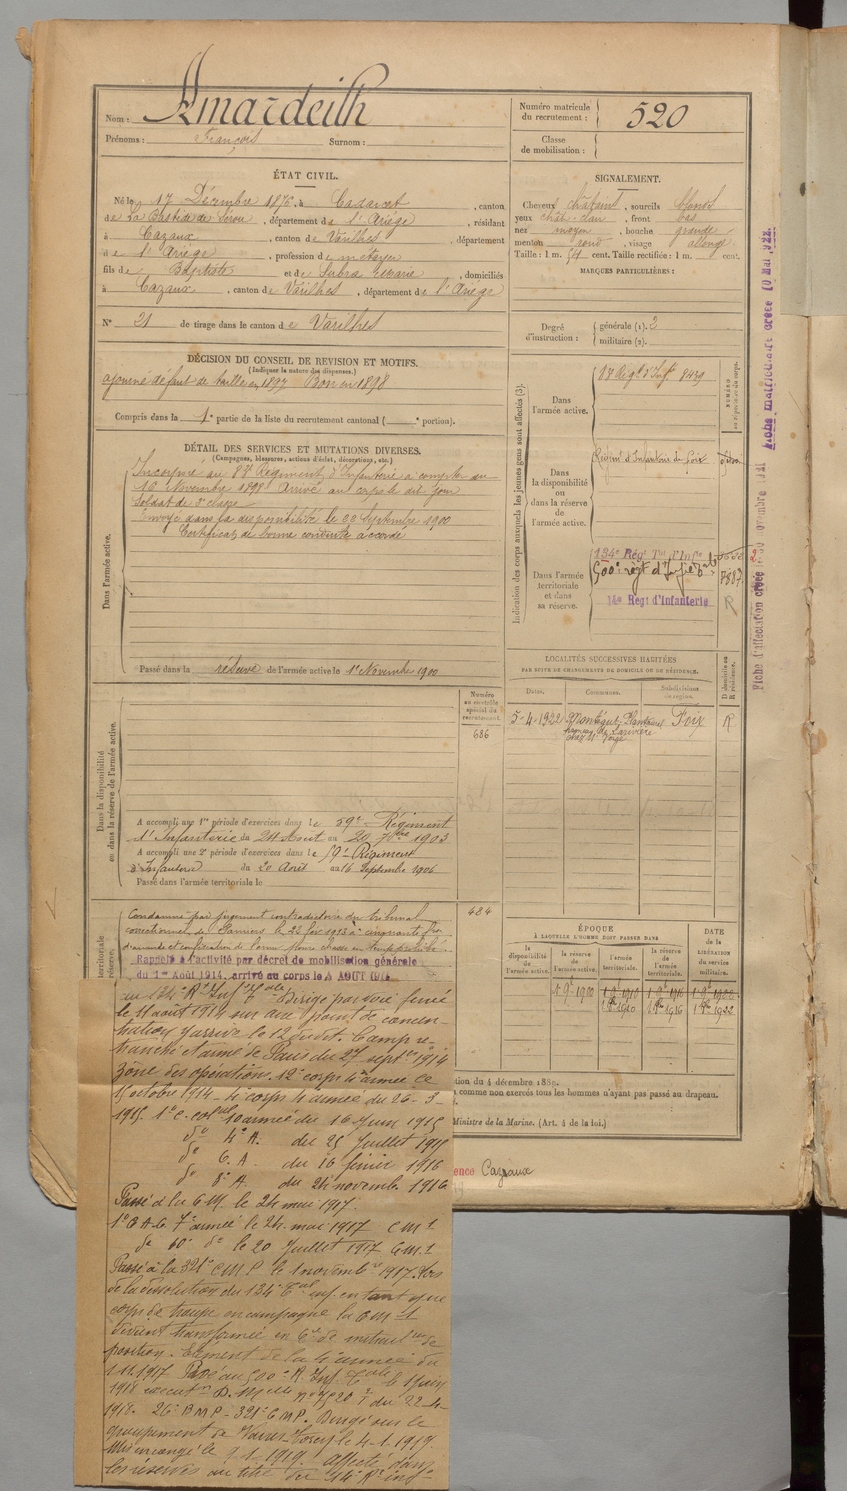 Nom : Amardeilh
Prénoms : François Surnom :
Numéro matricule du recrutement : 520
Classe de mobilisation :
ÉTAT CIVIL.
Né le 17 Décembre 1876, à Cadarcet, canton
de La Bastide de Sérou, département de l'Ariège, résidant
à Cazaux, canton de Varilhes, département
de l'Ariège, profession de métayer
fils de Baptiste et de Subra Marie, domiciliés
à Cazaux, canton de Varilhes, département de l'Ariège
N° 21 de tirage dans le canton de Varilhes
SIGNALEMENT.
Cheveux châtains, sourcils blonds
yeux chât. clair, front bas
nez moyen, bouche grande
menton rond, visage allongé
Taille : 1 m. 54 cent. Taille rectifiée : 1 m. cent.
MARQUES PARTICULIÈRES :
Degré d'instruction : générale (1). 2
militaire (2).
DÉCISION DU CONSEIL DE REVISION ET MOTIFS.
(Indiquer la nature des dispenses.)
ajourné défaut de taille en 1897 Bon en 1898
Compris dans la 1e partie de la liste du recrutement cantonal ( e portion).
DÉTAIL DES SERVICES ET MUTATIONS DIVERSES.
(Campagnes, blessures, actions d'éclat, décorations, etc.)
Dans l'armée active.
Incorporé au 87e Régiment d'Infanterie à compter du
16 Novembre 1898 Arrivé au corps le dit jour
Soldat de 2e classe
Envoyé dans la disponibilité le 22 Septembre 1900
Certificat de bonne conduite accordé
Passé dans la réserve de l'armée active le 1e Novembre 1900
Indication des corps auxquels les jeunes gens sont affectés (3).
NUMÉRO
Dans l'armée active.
87 Régt d'Inf. 8439
Dans la disponibilité ou dans la réserve de l'armée active.
Régiment d'Infanterie de Foix
Dans l'armée territoriale et dans sa réserve.
134e Rég. Ter. d'Infie
500e régt d'Infie Tale 7887
14e Régt d'Infanterie R
Fiche matriculaire créée 10 Mai 1922
Fiche d'affectation créée le 30 novembre
LOCALITÉS SUCCESSIVES HABITÉES
PAR SUITE DE CHANGEMENTS DE DOMICILE OU DE RÉSIDENCE.
Dates. Communes. Subdivisions de région. D domicile ou R résidence.
5-4-1922 Montégut Plantaurel Foix R
Numéro au contrôle spécial du recrutement.
686
Dans la disponibilité ou dans la réserve de l'armée active.
A accompli une 1re période d'exercices dans le 59e Régiment
d'Infanterie du 24 Août au 20 7bre 1903
A accompli une 2e période d'exercices dans le 59e Régiment
d'Infanterie du 20 Août au 16 Septembre 1906
Passé dans l'armée territoriale le
484
territoriale
Condamné par jugement contradictoire du tribunal
correctionnel de Pamiers le 22 fév 1913 à cinquante frs
d'amende et confiscation de l'arme pour chasse en temps prohibé.
Rappelé à l'activité par décret de mobilisation générale
du 1er Août 1914, arrivé au corps le 4 AOUT 1914
ÉPOQUE
À LAQUELLE L'HOMME DOIT PASSER DANS
DATE DE LA LIBÉRATION du service militaire.
la disponibilité de l'armée active. la réserve de l'armée active. l'armée territoriale. la réserve de l'armée territoriale.
1 9bre 1900 1 9bre 1910 1 9bre 1916 1 9bre 1922
1 8bre 1910 1 8bre 1916 1 8bre 1922
tion du 4 décembre 1889.
comme non exercés tous les hommes n'ayant pas passé au drapeau.
Ministre de la Marine. (Art. 4 de la loi.)
ence Cazaux
au 134e Rt Inf Tale Dirigé par voie ferrée
le 11 août 1914 sur aux point de concen-
tration y arrivé le 12 du dit. Camp re-
tranché et armé de Paris du 27 septbre 1914
Zône des opération. 12e corps 4e armée le
15 octobre 1914 - 4e corps 4e armée du 26-3-
1915. 1e c. colal 10 armée du 16 Juin 1915
do 4e A. du 25 Juillet 1915
do 6. A. du 16 février 1916
do 8e A. du 24 novembre 1916
Passé à la C M. le 24 mai 1917.
1e C A C 7e armée le 24 mai 1917 C M 1
de 60e de le 20 Juillet 1917 C M 1
Passé à la 321e C M P le 1 novembre 1917. Lors
de la dissolution du 134e Tal inf en tant que
corps de troupe en campagne la C M 1
devient transformée en Cie de mitrailses de
position. Elément de la 4e armée du
1.11.1917 Passé au 500e R. Inf. Tale le Juin
1918 exécution D. Mlle no 7520 du 22-4-
1918. 26e B M P - 321e C M P. Dirigé sur le
groupement de le 4-1-1919.
Mis en congé le 9.1.1919. affecté dans
les réserves au titre du 14e Rt infie